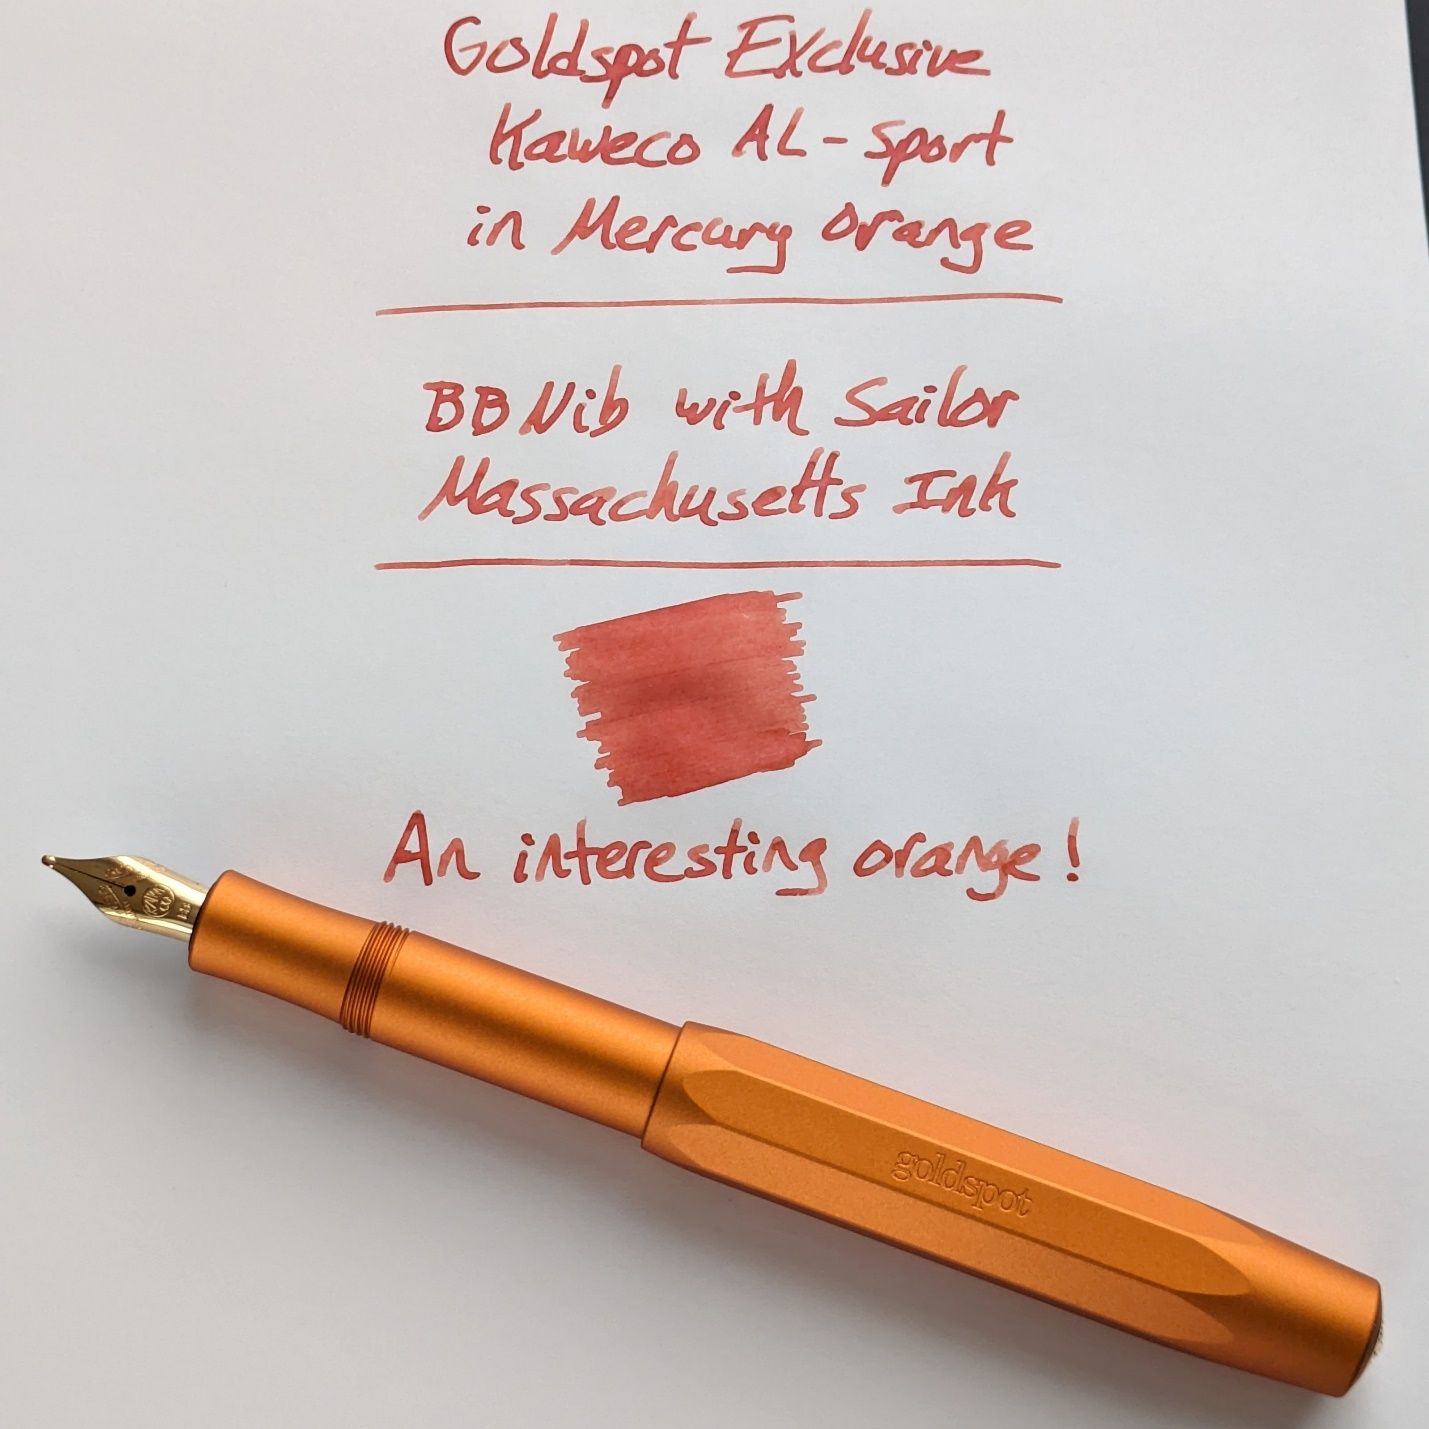 Goldspot Exclusive
Kaweco AL-Sport
in Mercury Orange
BB Nib with Sailor
Massachusetts Ink
An interesting orange!
goldspot